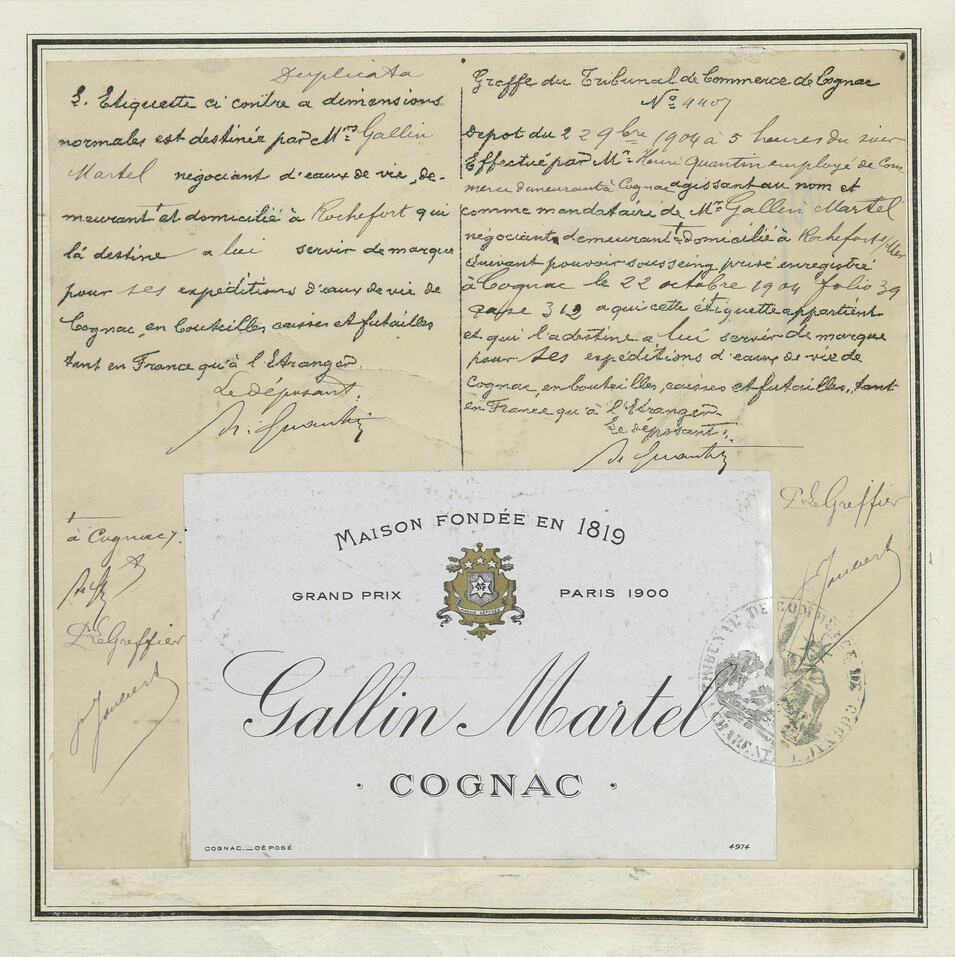 Duplicata
L'Etiquette ci contre a dimensions
normales est destinée par Mr Gallin
Martel négociant d'eaux de vie, de-
meurant et domicilié à Rochefort qui
la destine a lui servir de marque
pour ses expéditions d'eaux de vie de
Cognac, en bouteilles caisses et futailles
tant en France qu'à l'Etranger.
Le déposant,
H. Quantin
Greffe du Tribunal de Commerce de Cognac
No 4407
Depot du 2 9bre 1904 à 5 heures du soir
Effectué par Mr Henri Quantin employé de Com
merce demeurant à Cognac agissant au nom et
comme mandataire de Mr Gallin Martel
négociant demeurant & domicilié à Rochefort s/Mer
suivant pouvoir sous seing privé enregistré
à Cognac le 22 octobre 1904 folio 39
case 312 a qui cette étiquette appartient
et qui l'a destine a lui servir de marque
pour ses expéditions d'eaux de vie de
Cognac, en bouteilles, caisses et futailles, tant
en France qu'à l'Etranger
Le déposant,
H. Quantin
P. Le Greffier
J. Joubert
à Cognac
P. Le Greffier
J. Joubert
MAISON FONDÉE EN 1819
GRAND PRIX PARIS 1900
MARQUE DÉPOSÉE
Gallin Martel
· COGNAC ·
COGNAC._DÉPOSÉ 4974
TRIBUNAL DE COMMERCE DE COGNAC
CHARENTE